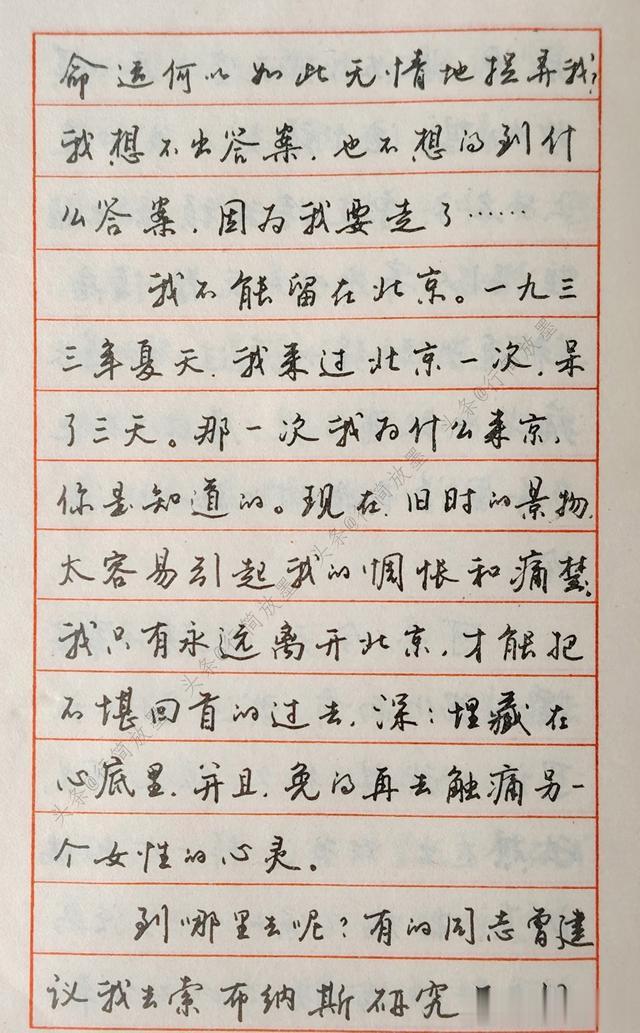 命运何以如此无情地捉弄我？
我想不出答案，也不想的到什
么答案，因为我要走了……
我不能留在北京。一九三
三年夏天，我来过北京一次，呆
了三天。那一次我为什么来京，
你是知道的。现在，旧时的景物，
太容易引起我的惆怅和痛楚。
我只有永远离开北京，才能把
不堪回首的过去，深：埋藏在
心底里，并且，免的再去触痛另一
个女性的心灵。
到哪里去呢？有的同志曾建
议我去索布纳斯研究
头条@行简放墨
头条@行简放墨
头条@行简放墨
头条@行简放墨